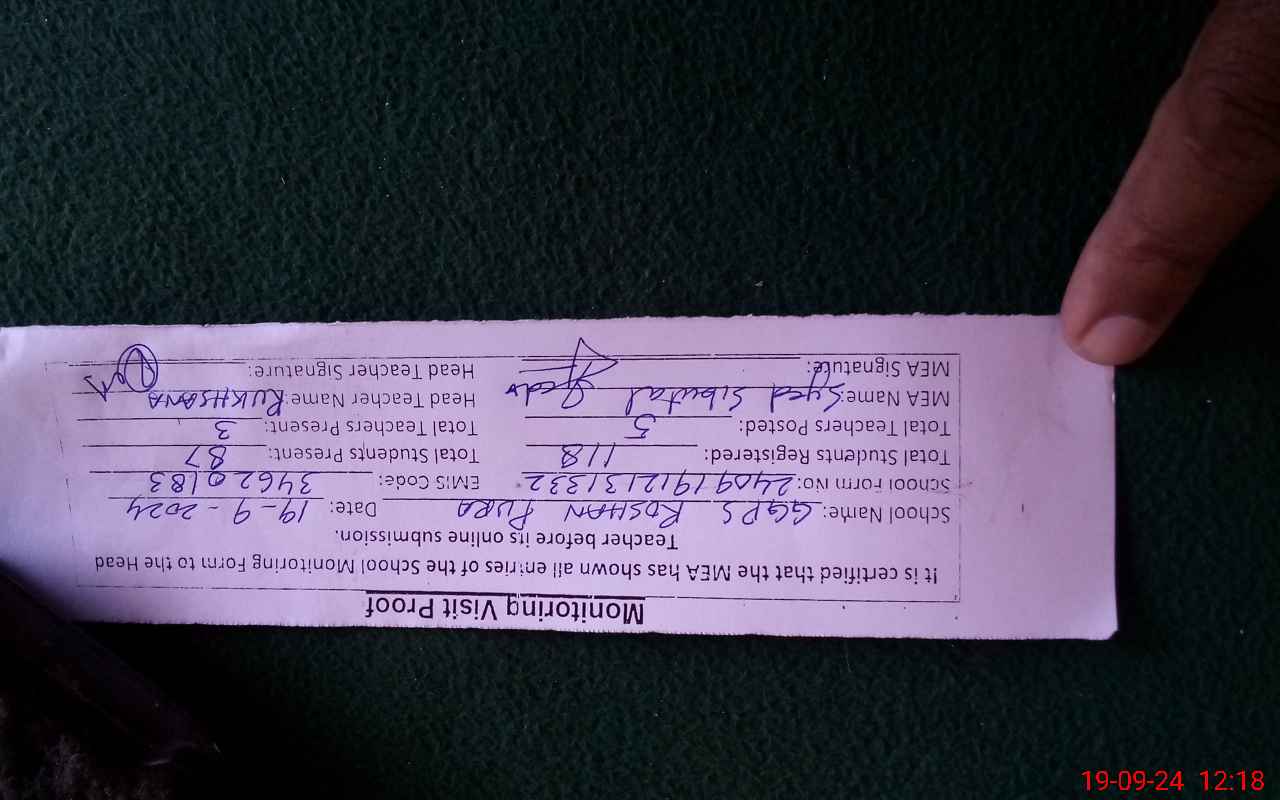 Monitoring Visit Proof
It is certified that the MEA has shown all entries of the School Monitoring Form to the Head
Teacher before its online submission.
School Name: GGPS ROSHAN PURA Date: 19-9-2024
School Form No: 2409191213 1332 EMIS Code: 34620183
Total Students Registered: 118 Total Students Present: 87
Total Teachers Posted: 5 Total Teachers Present: 3
MEA Name: Syed Head Teacher Name: RUKHSANA
MEA Signature: Head Teacher Signature:
19-09-24 12:18